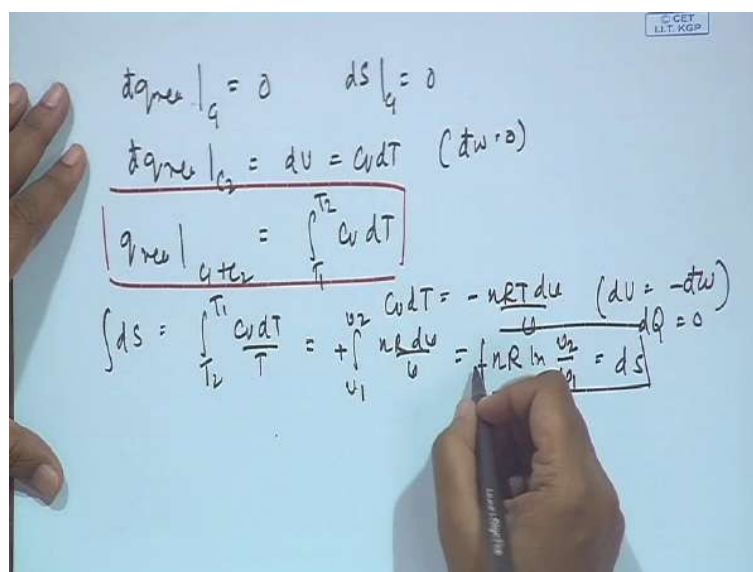 © CET
I.I.T. KGP
đq_rev |_{C1} = 0    dS |_{C1} = 0
đq_rev |_{C2} = dU = C_V dT    (đw = 0)
q_rev |_{C1+C2} = ∫_{T1}^{T2} C_V dT
C_V dT = - nRT dv / v    (dU = -đw)
dQ = 0
∫ dS = ∫_{T2}^{T1} C_V dT / T = + ∫_{v1}^{v2} nR dv / v = + nR ln v2 / v1 = dS